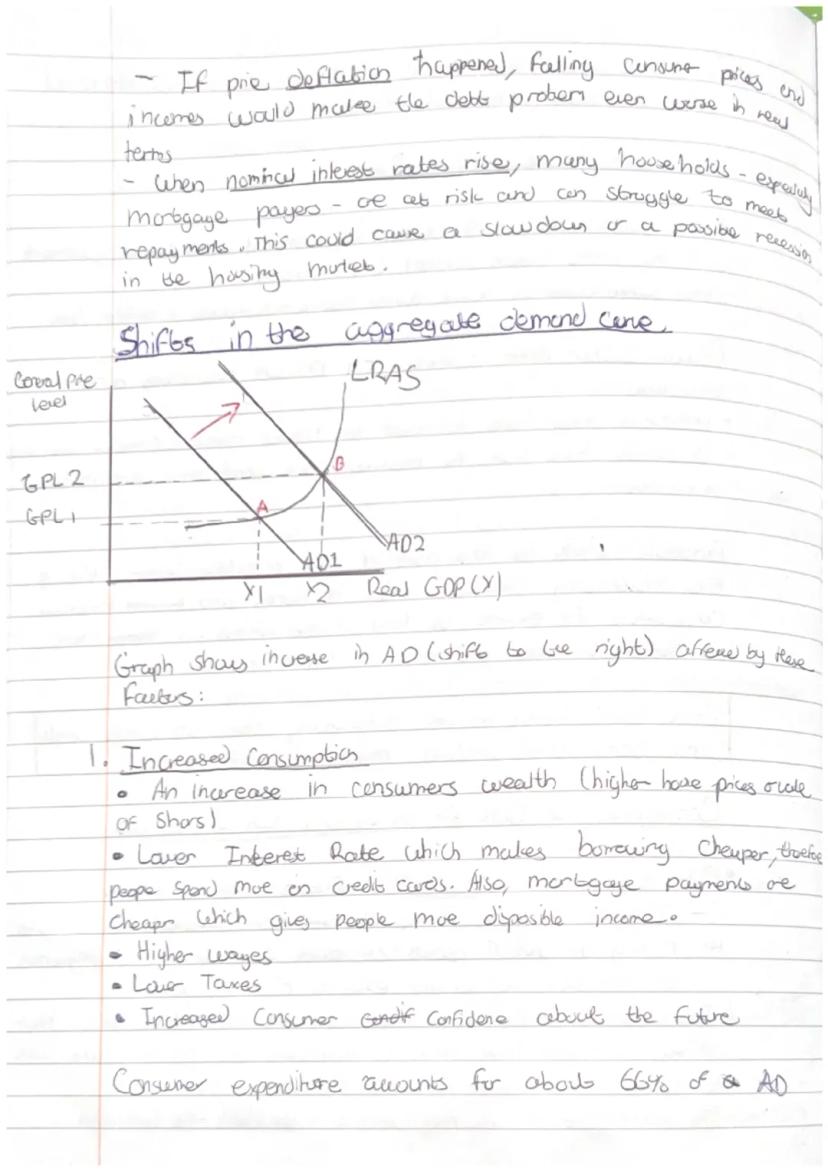 - If price deflation happened, falling consumer prices and
incomes would make the debt problem even worse in real
terms
- When nominal interest rates rise, many households - especially
mortgage payers - are at risk and can struggle to meet
repayments. This could cause a slowdown or a possible recession
in the housing market.
Shifts in the aggregate demand curve
General Price
level
LRAS
GPL 2
B
GPL 1
A
AD2
AD1
Y1 Y2 Real GDP (Y)
Graph shows increase in AD (shift to the right) affected by these
factors:
1. Increased Consumption
• An increase in consumers wealth (higher house prices or value
of shares)
• Lower Interest Rate which makes borrowing cheaper, therefore
people spend more on credit cards. Also, mortgage payments are
cheaper which gives people more disposable income.
• Higher wages
• Lower Taxes
• Increased Consumer confidence about the future
Consumer expenditure accounts for about 66% of AD